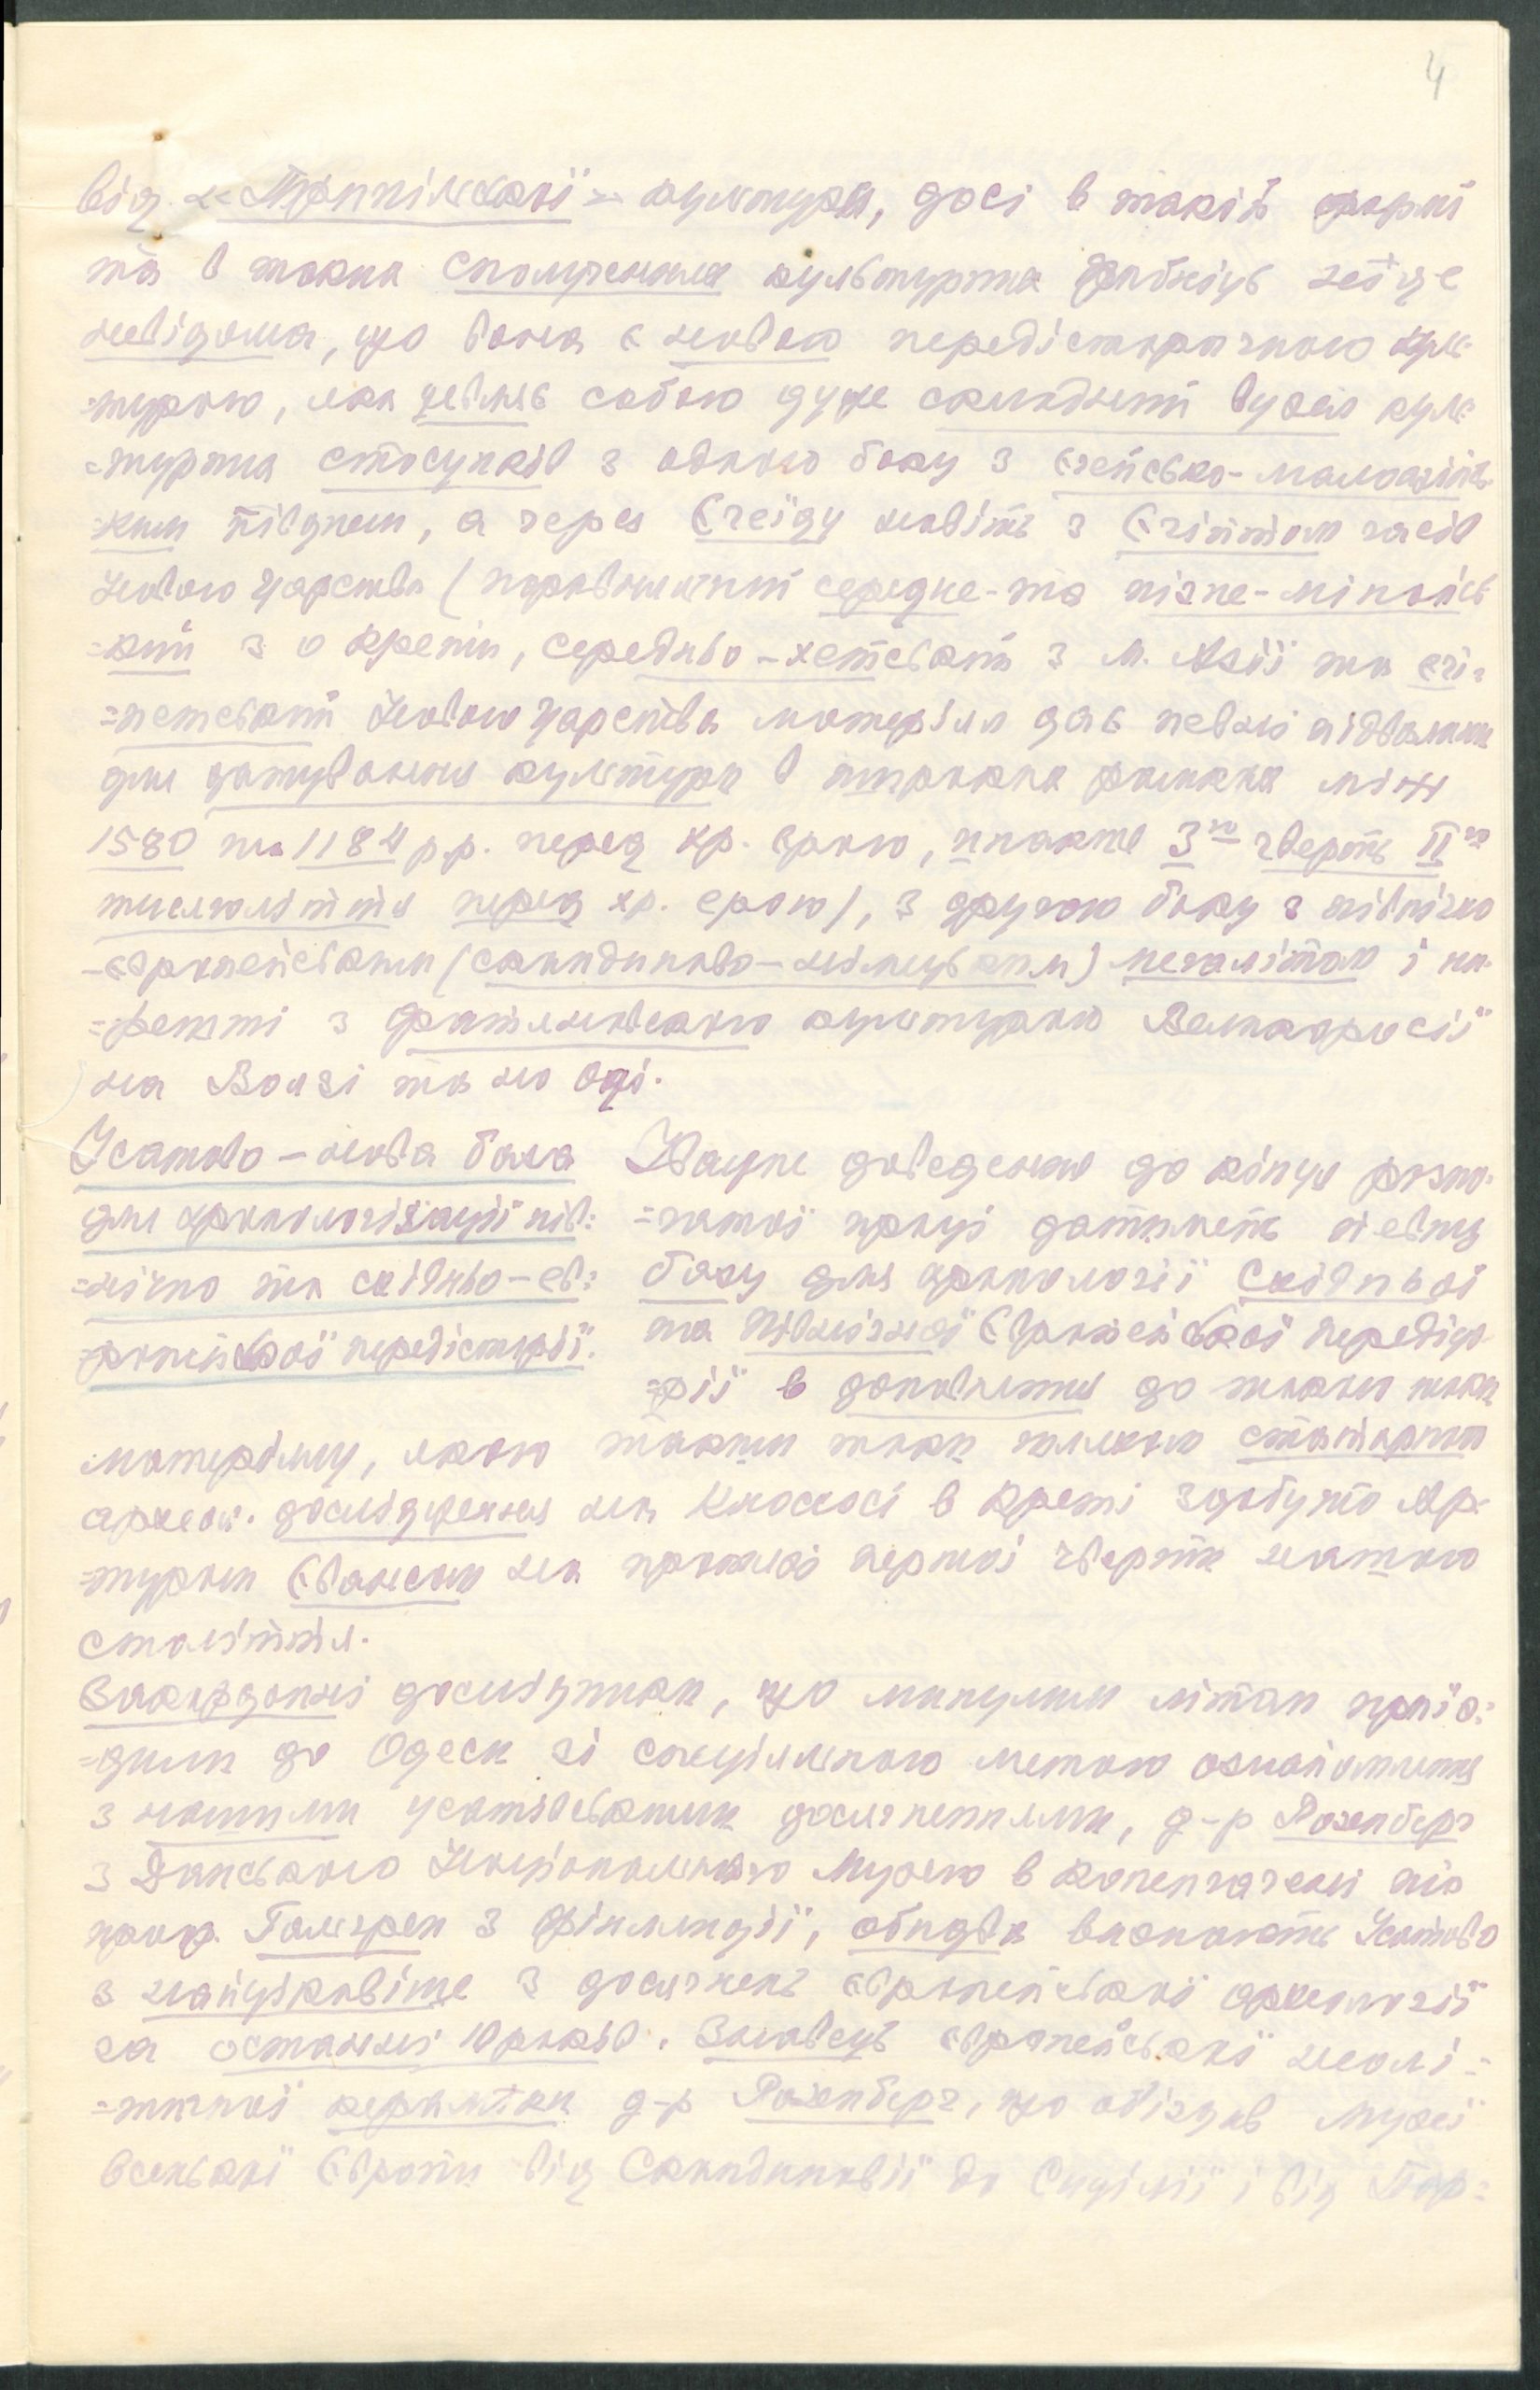 4
від «Трипільської» культури, досі в такій формі
та в таких сполученнях культурних здобутків ніде
невідома, що вона є новою передісторичною куль-
=турою, яка уявляє собою дуже складний вузол куль-
=турних стосунків з одного боку з Єгейсько-малоазійсь-
=ким півднем, а через Єгеїду навіть з Єгиптом часів
Нового царства (порівняльний середнє- та пізнє-мінойсь-
=кий з о Крети, середньо-хетський з М. Азії та єгі-
=петський Нового царства матеріял дає певні підвалини
для датування культури в широких рямках між
1580 та 1184 р.р. перед хр. ерою, инакше 3ю чверть ІІго
тисячоліття перед хр. ерою), з другого боку з північно
-європейським (скандинаво-німецьким) мегалітом і на-
=решті з фатьянівською культурою Великоросії
на Волзі та на Оці.
Усатово – нова база
для хронологізації пів=
=нічно та східньо-єв=
=ропейської передісторії.
Наукове доведення до кінця розпо-
=чатої праці датиметь певну
базу для хронології Східньої
та Північної Європейської передісто-
=рії в доповнення до такого ж
матеріялу, якого таким таки шляхом стаціярного
археол. дослідження на Кнососі в Креті здобуто Ар-
=туром Евансом на протязі першої чверти нашого
століття.
Закордонні дослідники, що минулими літами приїз=
=дили до Одеси зі спеціяльною метою ознайомитись
з нашими усатівськими досягненнями, д-р Розенберг
з Данського Національного Музею в Копенгагені та
проф. Тальгрен з Фінляндії, обидва визнають Усатово
з найцікавіше з досягнень європейської археології
за останні 10 років. Знавець європейської неолі=
=тичної кераміки д-р Розенберг, що об'їздив музеї
всенької Європи від Скандинавії до Сицилії і від Пор=